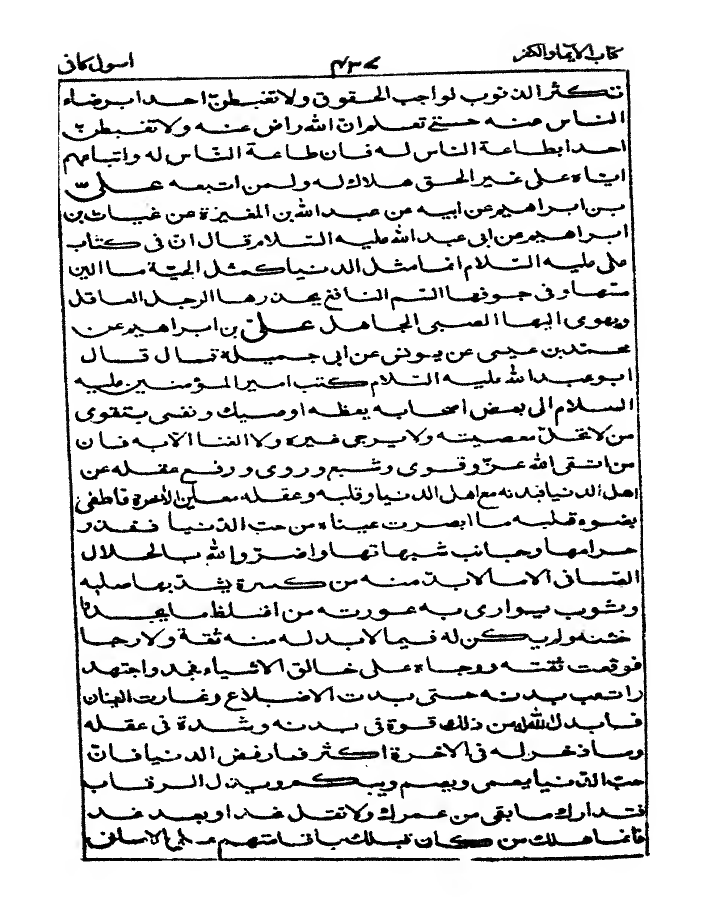 كتاب الايمان والكفر ٤٣٧ اصول كافى
تكثر الذنوب لواجب الحقوق ولا تغبطنّ احدا برضاء
الناس عنه حتى تعلم انّ الله راض عنه ولا تغبطنّ
احدا بطاعة الناس له فان طاعة النّاس له واتباعهم
ايّاه على غير الحق هلاك له ولمن اتبعه علىّ
بن ابراهيم عن ابيه عن عبد الله بن المغيرة عن غياث بن
ابراهيم عن ابى عبد الله عليه السّلام قال انّ فى كتاب
على عليه السّلام انما مثل الدنيا كمثل الحيّة ما الين
مسّها وفى جوفها السّم النّاقع يحذرها الرجل العاقل
ويهوى اليها الصبى الجاهل علىّ بن ابراهيم عن
محمّد بن عيسى عن يونس عن ابى جميلة قال قال
ابو عبد الله عليه السّلام كتب امير المؤمنين عليه
السلام الى بعض اصحابه يعظه اوصيك ونفسى بتقوى
من لا تحلّ معصيته ولا يرجى غيره ولا الغنا الا به فان
من اتقى الله عزّ وقوى وشبع وروى ورفع عقله عن
اهل الدنيا فبدنه مع اهل الدنيا وقلبه وعقله معاين الاخرة فاطفى
بضوء قلبه ما ابصرت عيناه من حبّ الدّنيا فقذر
حرامها وجانب شبهاتها واضرّ والله بالحلال
الصّافى الا ما لا بدّ منه من كسرة يشدّ بها صلبه
وثوب يوارى به عورته من اغلظ ما يجد
خشنه ولم يكن له فيما لا بد له منه ثقة ولا رجا
فوقعت ثقته ورجاه على خالق الاشياء فجد واجتهد
واتعب بدنه حتى بدت الاضلاع وغارت العينان
فابدل الله له من ذلك قوة فى بدنه وشدة فى عقله
وما ذخر له فى الاخرة اكثر فارفض الدنيا فانّ
حبّ الدّنيا يعمى ويصم ويبكم ويذل الرقاب
فتدارك ما بقى من عمرك ولا تقل غدا او بعد غد
فانما هلك من كان قبلك باقامتهم على الامانى